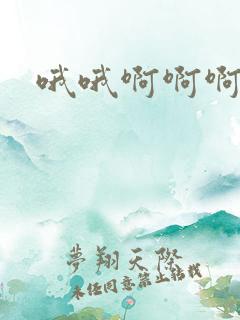 哦哦啊啊啊
夢翔天際
未經同意禁止轉載